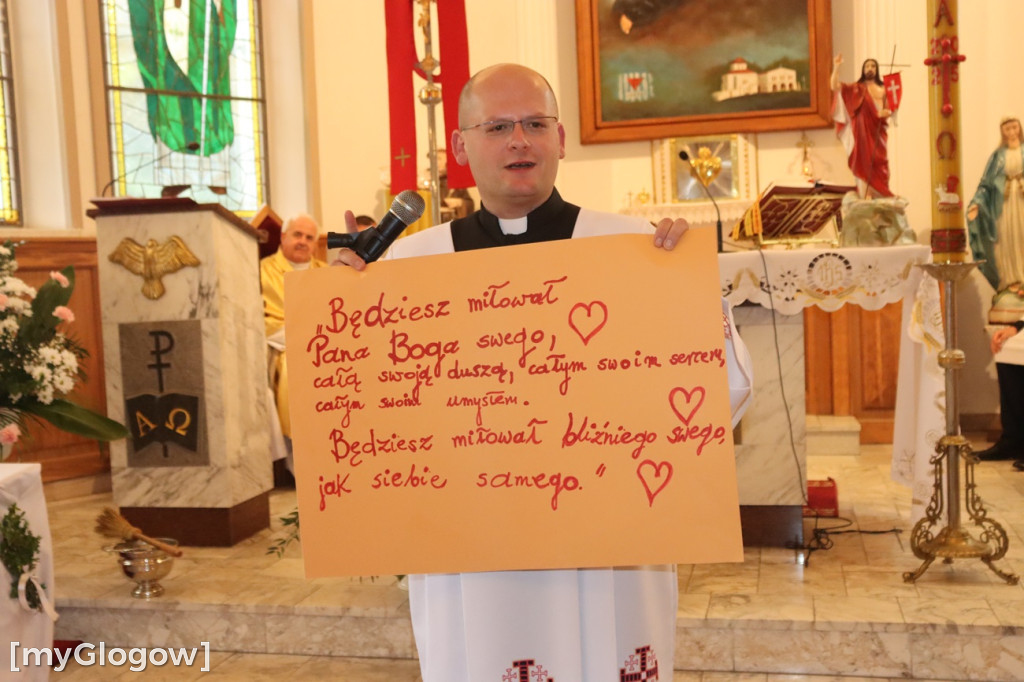 „Będziesz miłował
Pana Boga swego,
całą swoją duszą, całym swoim sercem,
całym swoim umysłem.
Będziesz miłował bliźniego swego,
jak siebie samego."
A
Ω
A Ω
IHS
[myGlogow]